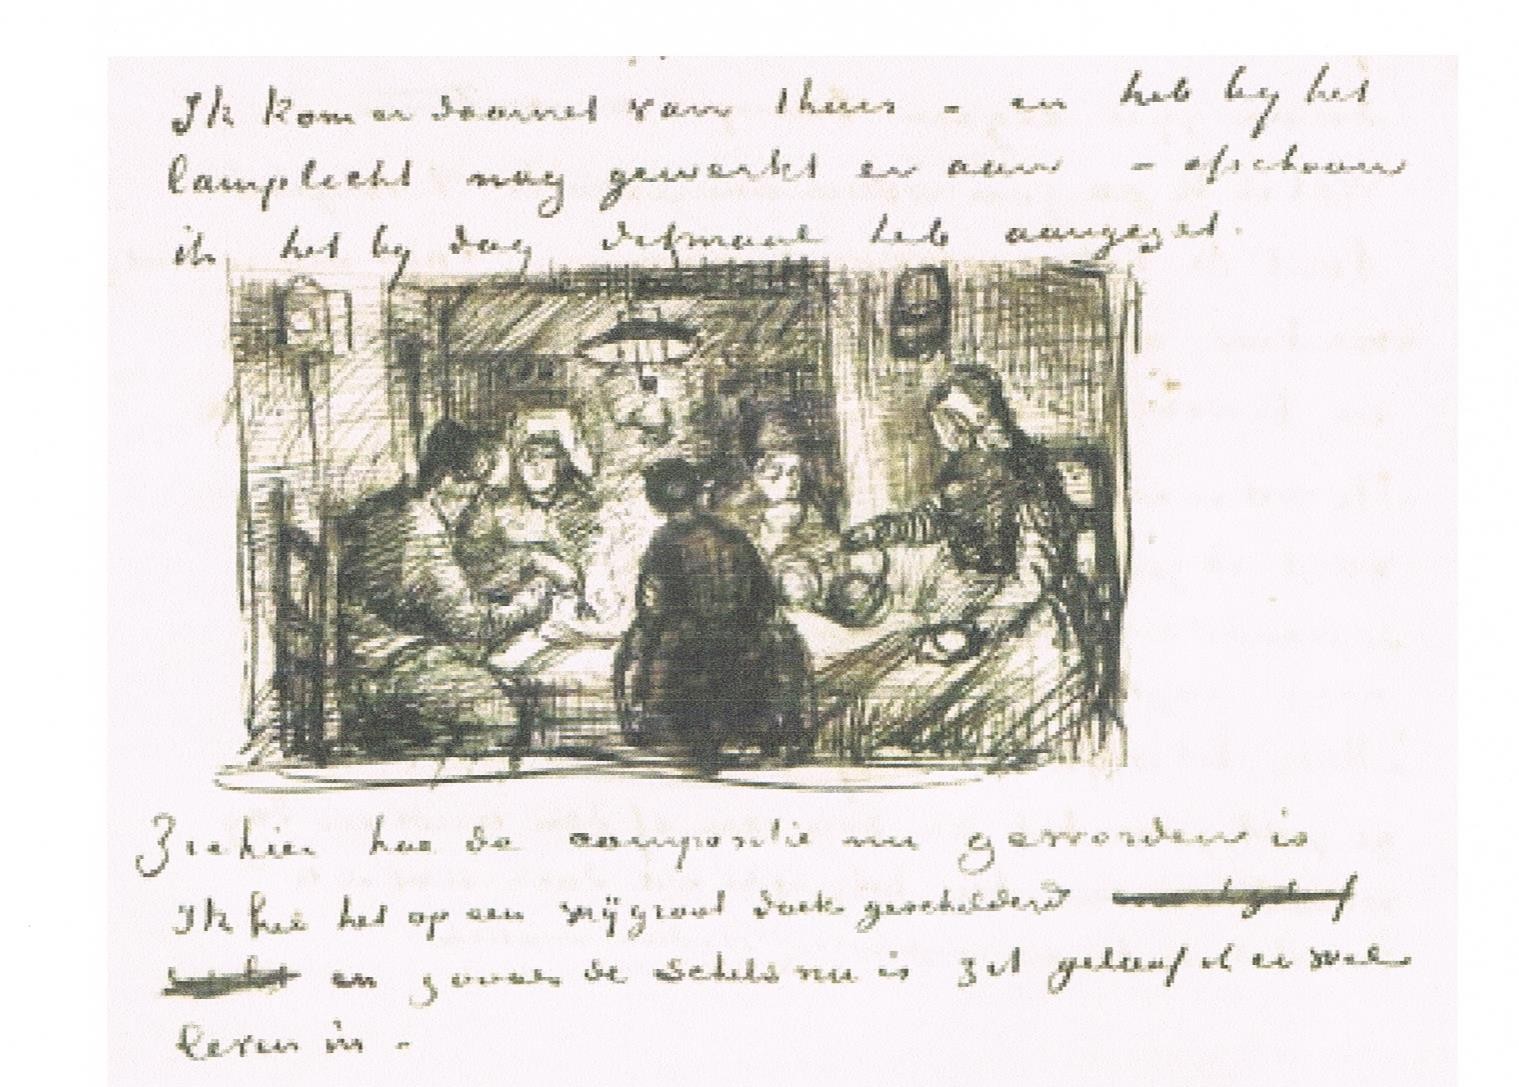 Ik kom er daarnet van thuis – en heb by het
lamplicht nog gewerkt er aan – ofschoon
ik het by dag ditmaal heb aangezet.
Ziehier hoe de compositie nu geworden is
Ik heb het op een vrij groot doek geschilderd
en zooals de schets nu is zit geloof ik er wel
leven in –